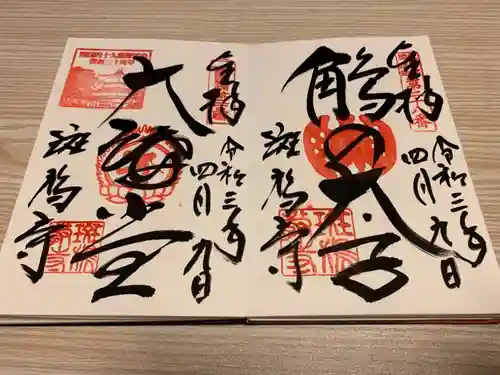 奉拝
令和三年
四月九日
鵤の太子
斑鳩寺
奉拝
令和三年
四月九日
大講堂
斑鳩寺